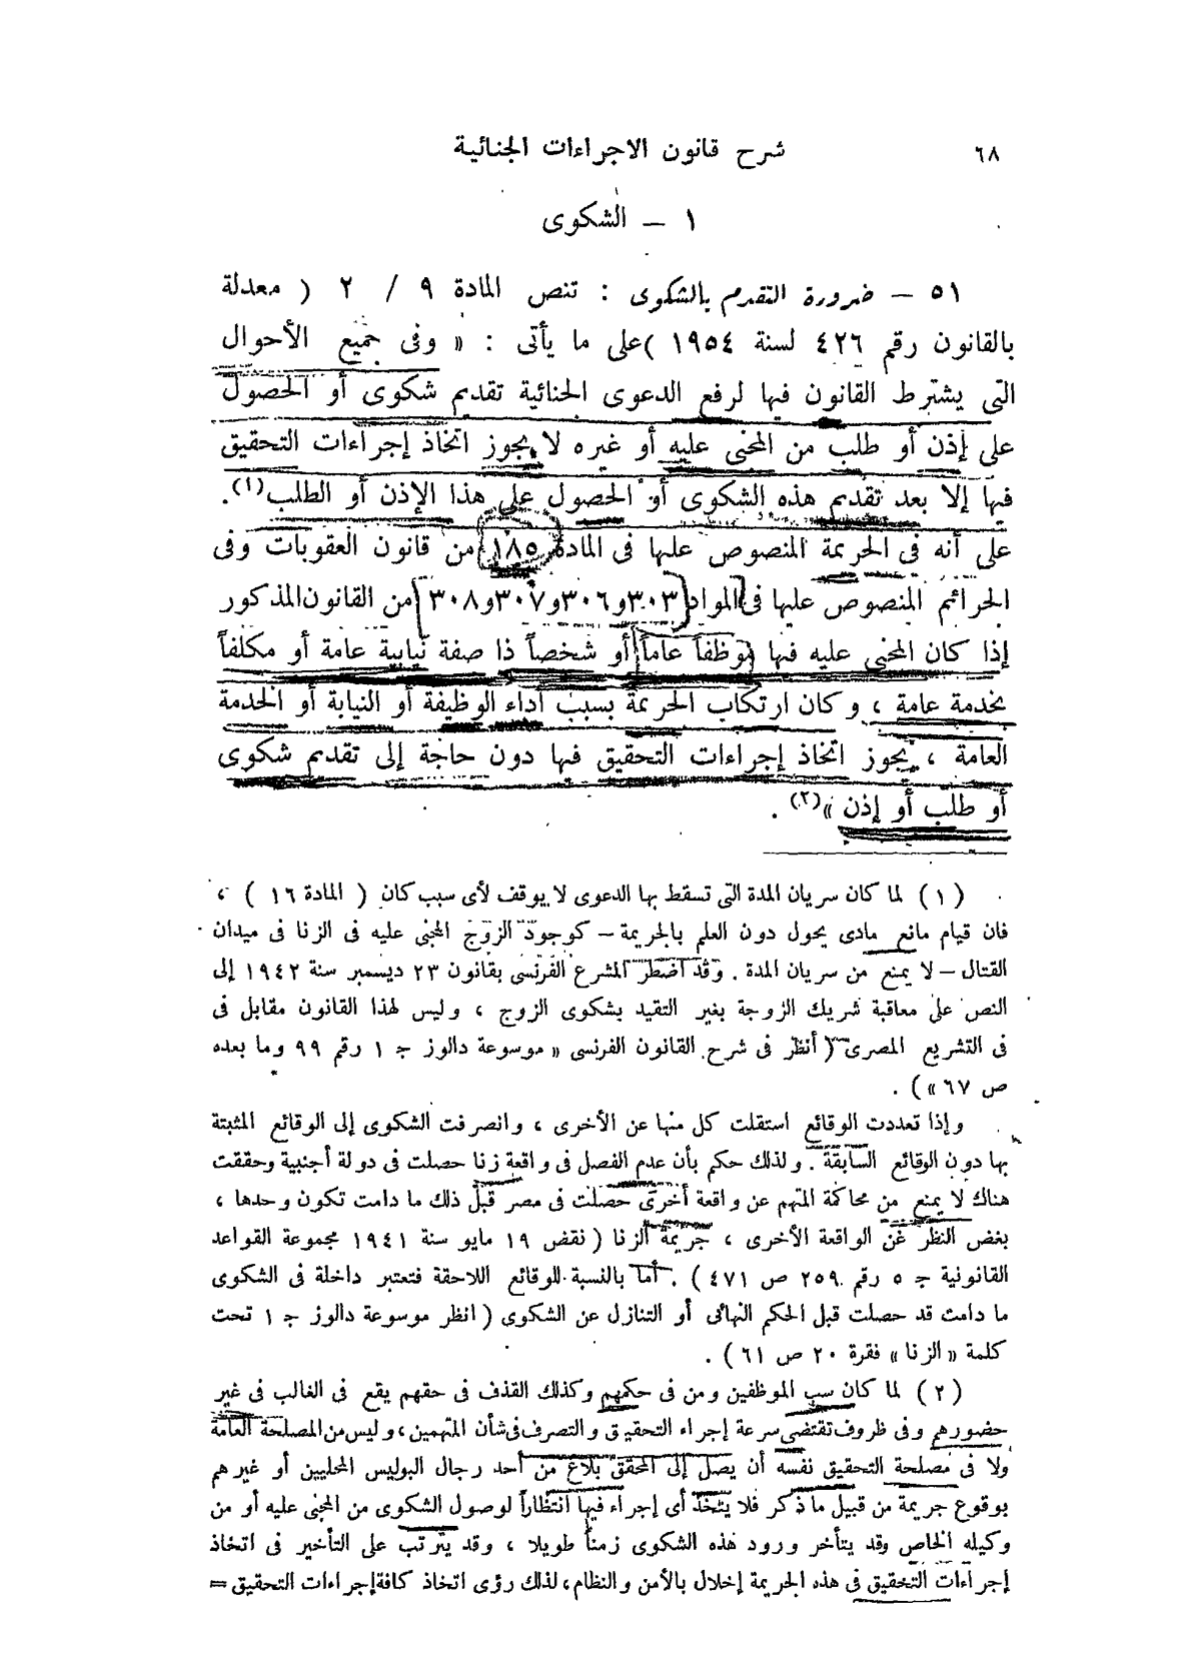 ٦٨ شرح قانون الاجراءات الجنائية
١ – الشكوى
٥١ – ضرورة التقدم بالشكوى : تنص المادة ٩ / ٢ ( معدلة
بالقانون رقم ٤٢٦ لسنة ١٩٥٤ ) على ما يأتى : « وفى جميع الأحوال
التى يشترط القانون فيها لرفع الدعوى الجنائية تقديم شكوى أو الحصول
على إذن أو طلب من المجنى عليه أو غيره لا يجوز اتخاذ إجراءات التحقيق
فيها إلا بعد تقديم هذه الشكوى أو الحصول على هذا الإذن أو الطلب(١).
على أنه فى الجريمة المنصوص عليها فى المادة ١٨٥ من قانون العقوبات وفى
الجرائم المنصوص عليها فى المواد ٣٠٣ و٣٠٦ و٣٠٧ و٣٠٨ من القانون المذكور
إذا كان المجنى عليه فيها موظفاً عاماً أو شخصاً ذا صفة نيابية عامة أو مكلفاً
بخدمة عامة ، وكان ارتكاب الجريمة بسبب أداء الوظيفة أو النيابة أو الخدمة
العامة ، يجوز اتخاذ إجراءات التحقيق فيها دون حاجة إلى تقديم شكوى
أو طلب أو إذن »(٢) .
( ١ ) لما كان سريان المدة التى تسقط بها الدعوى لا يوقف لأى سبب كان ( المادة ١٦ ) ،
فان قيام مانع مادى يحول دون العلم بالجريمة – كوجود الزوج المجنى عليه فى الزنا فى ميدان
القتال – لا يمنع من سريان المدة . وقد اضطر المشرع الفرنسى بقانون ٢٣ ديسمبر سنة ١٩٤٢ إلى
النص على معاقبة شريك الزوجة بغير التقيد بشكوى الزوج ، وليس لهذا القانون مقابل فى
فى التشريع المصرى ( أنظر فى شرح القانون الفرنسى « موسوعة دالوز ج ١ رقم ٩٩ وما بعده
ص ٦٧ » ) .
وإذا تعددت الوقائع استقلت كل منها عن الأخرى ، وانصرفت الشكوى إلى الوقائع المثبتة
بها دون الوقائع السابقة . ولذلك حكم بأن عدم الفصل فى واقعة زنا حصلت فى دولة أجنبية وحققت
هناك لا يمنع من محاكمة المتهم عن واقعة أخرى حصلت فى مصر قبل ذلك ما دامت تكون وحدها ،
بغض النظر عن الواقعة الأخرى ، جريمة الزنا ( نقض ١٩ مايو سنة ١٩٤١ مجموعة القواعد
القانونية ج ٥ رقم ٢٥٩ ص ٤٧١ ) . أما بالنسبة للوقائع اللاحقة فتعتبر داخلة فى الشكوى
ما دامت قد حصلت قبل الحكم النهائى أو التنازل عن الشكوى ( انظر موسوعة دالوز ج ١ تحت
كلمة « الزنا » فقرة ٢٠ ص ٦١ ) .
( ٢ ) لما كان سب الموظفين ومن فى حكمهم وكذلك القذف فى حقهم يقع فى الغالب فى غير
حضورهم وفى ظروف تقتضى سرعة إجراء التحقيق والتصرف فى شأن المتهمين ، وليس من المصلحة العامة
ولا فى مصلحة التحقيق نفسه أن يصل إلى المحقق بلاغ من أحد رجال البوليس المحليين أو غيرهم
بوقوع جريمة من قبيل ما ذكر فلا يتخذ أى إجراء فيها انتظاراً لوصول الشكوى من المجنى عليه أو من
وكيله الخاص وقد يتأخر ورود هذه الشكوى زمناً طويلا ، وقد يترتب على التأخير فى اتخاذ
إجراءات التحقيق فى هذه الجريمة إخلال بالأمن والنظام ، لذلك رؤى اتخاذ كافة إجراءات التحقيق =